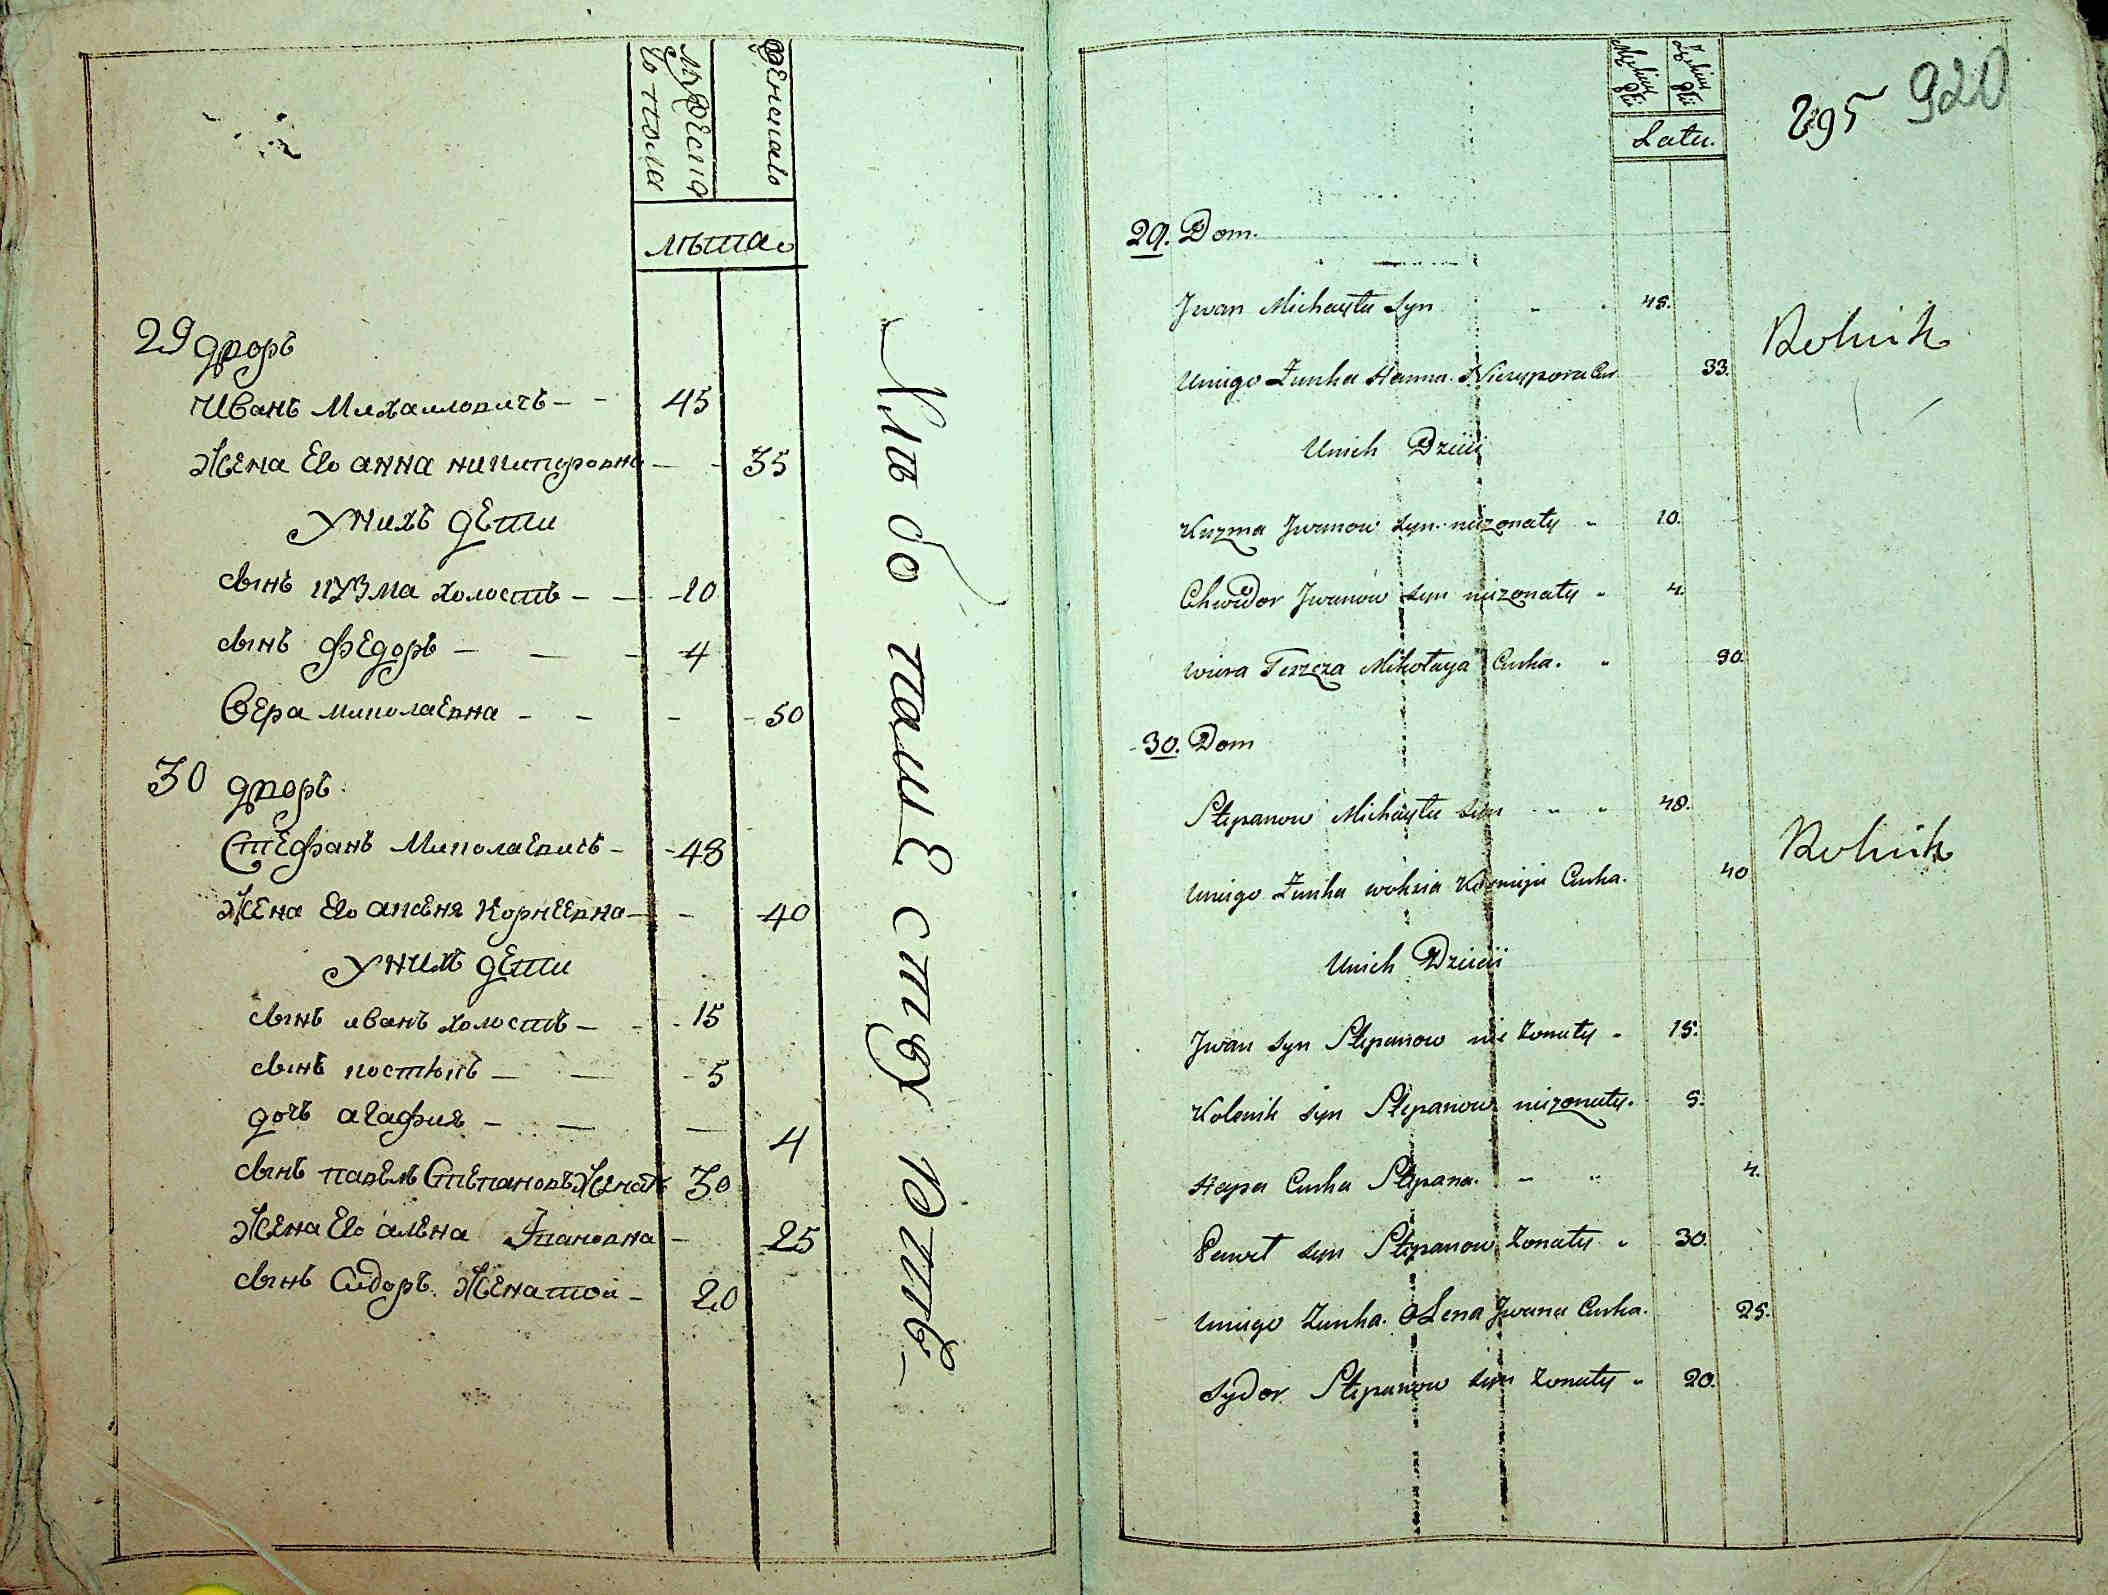 мужеска
го пола
женскаго
лѣта
29 дворъ
Иванъ Михаиловичъ - - 45
Жена Его анна никипоровна - - 35
Унихъ дети
сынъ кузма холостъ - - 10
сынъ федоръ - - - 4
Вера миколаевна - - - 50
30 дворъ
Стефанъ Миколаевичъ - 48
Жена Его аксеня Корнеевна - - 40
Унихъ дети
сынъ иванъ холостъ - - 15
сынъ костюкъ - - 5
дочь агафия - - - 4
сынъ павелъ Степановъ Женатъ 30
Жена Его алена Ивановна - 25
сынъ Сидоръ Женатои - 20
Хлебопашествуютъ
Latu.
295 920
29. Dom.
Jwan Michayłu Syn 45.
Uniego Żunka Hanna Niczypora Cur 33.
Unich Dzieci
Kuzma Jwanow Syn nieżonaty 10.
Chwedor Jwanow Syn nieżonaty 4.
Wiera Teszcza Mikołaya Curka. 30.
Rolnik
30. Dom
Stepanow Michayłu Syn 48.
Uniego Żunka woksia Kornieja Curka. 40
Unich Dzieci
Jwan Syn Stepanow nie żonaty 15.
Kolenik Syn Stepanow nieżonaty. 5.
Hapa Curka Stepana. 4.
Paweł Syn Stepanow żonaty 30.
Uniego Żunka Olena Jwana Curka. 25.
Sydor Stepanow Syn żonaty 20.
Rolnik